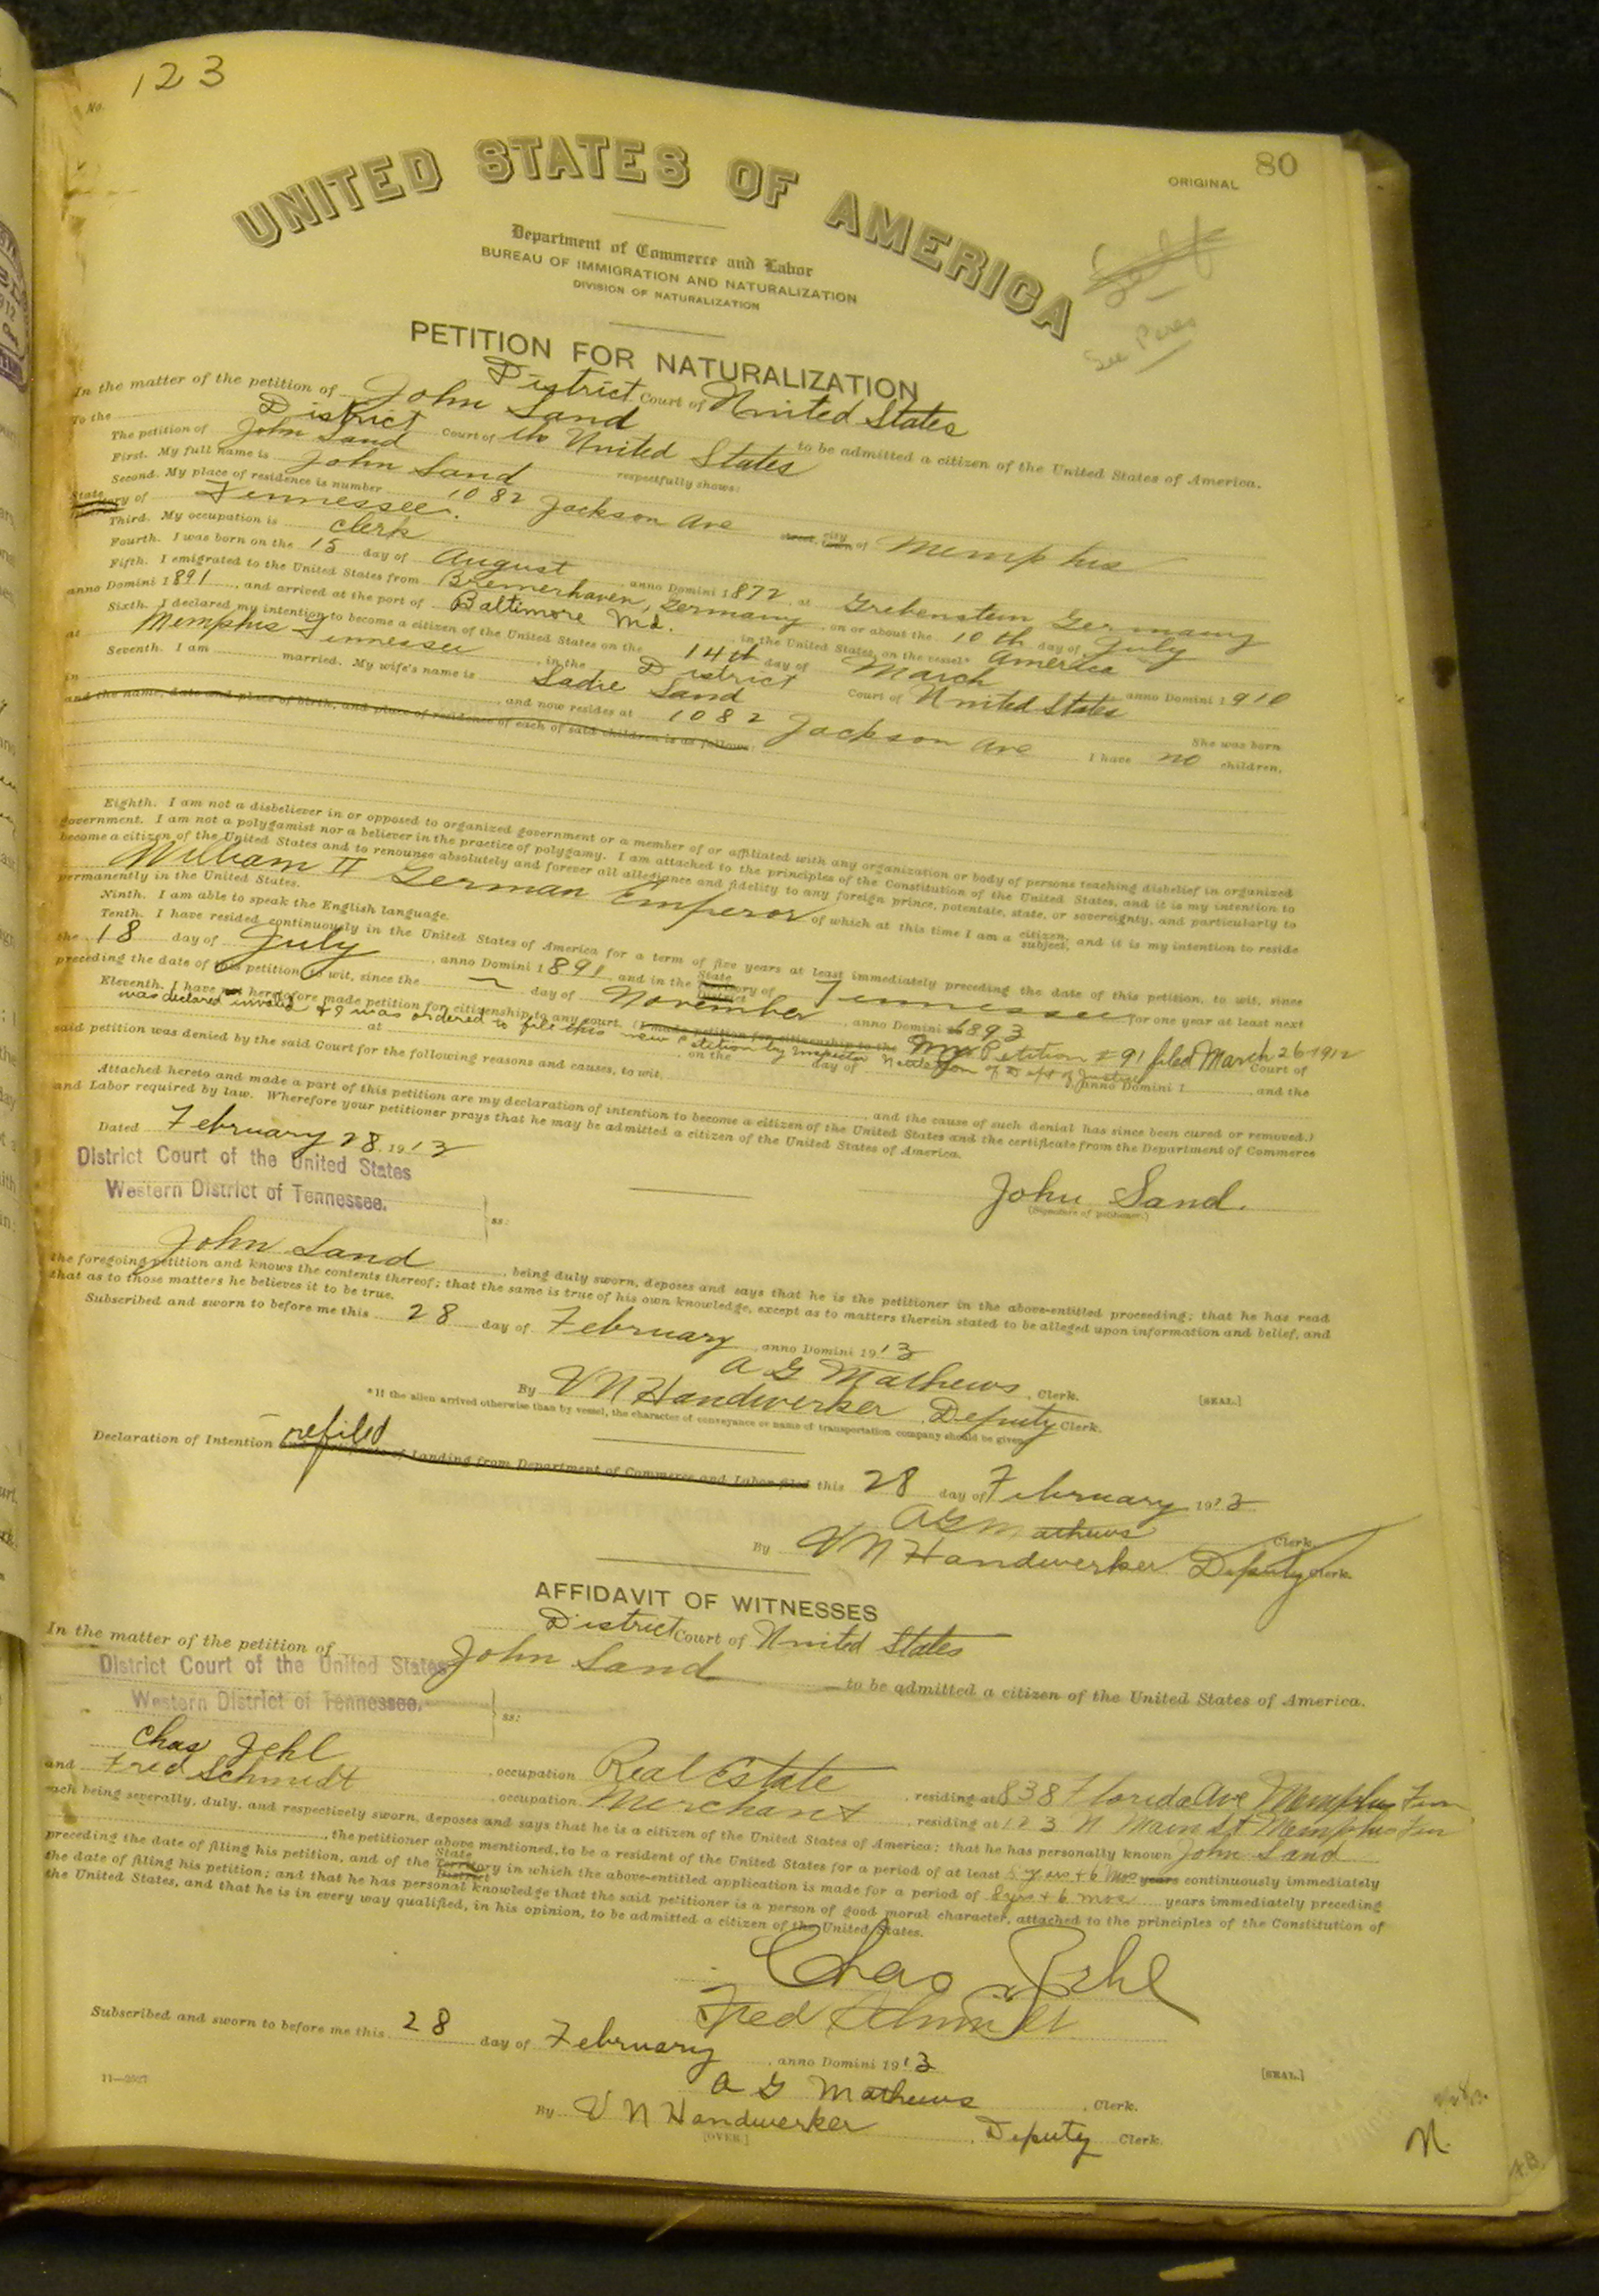 No. 123
80
ORIGINAL
UNITED STATES OF AMERICA
Department of Commerce and Labor
BUREAU OF IMMIGRATION AND NATURALIZATION
DIVISION OF NATURALIZATION
PETITION FOR NATURALIZATION
District Court of United States
In the matter of the petition of John Sand to be admitted a citizen of the United States of America.
To the District Court of the United States
The petition of John Sand respectfully shows:
First. My full name is John Sand
Second. My place of residence is number 1082 Jackson Ave city of Memphis
State of Tennessee.
Third. My occupation is clerk
Fourth. I was born on the 15 day of August, anno Domini 1872, at Grebenstein Germany
Fifth. I emigrated to the United States from Bremerhaven, Germany, on or about the 10th day of July
anno Domini 1891, and arrived at the port of Baltimore Md. in the United States, on the vessel* America
Sixth. I declared my intention to become a citizen of the United States on the 14th day of March anno Domini 1910
at Memphis Tennessee, in the District Court of United States
Seventh. I am married. My wife's name is Sadie Sand She was born
in, and now resides at 1082 Jackson Ave I have no children,
and the name, date and place of birth, and place of residence of each of said children is as follows:
Eighth. I am not a disbeliever in or opposed to organized government or a member of or affiliated with any organization or body of persons teaching disbelief in organized
government. I am not a polygamist nor a believer in the practice of polygamy. I am attached to the principles of the Constitution of the United States, and it is my intention to
become a citizen of the United States and to renounce absolutely and forever all allegiance and fidelity to any foreign prince, potentate, state, or sovereignty, and particularly to
William II German Emperor of which at this time I am a citizen, subject, and it is my intention to reside
permanently in the United States.
Ninth. I am able to speak the English language.
Tenth. I have resided continuously in the United States of America for a term of five years at least immediately preceding the date of this petition, to wit, since
the 18 day of July, anno Domini 1891 and in the State Territory District of Tennessee for one year at least next
preceding the date of this petition, to wit, since the day of November, anno Domini 1893
Eleventh. I have not heretofore made petition for citizenship to any court. (I made petition for citizenship to the My Petition #91 filed March 26-1912
was declared invalid & I was ordered to file this new Petition by Inspector of Dept of Justice
at, on the day of, anno Domini 1, and the Court of
said petition was denied by the said Court for the following reasons and causes, to wit,
and the cause of such denial has since been cured or removed.)
Attached hereto and made a part of this petition are my declaration of intention to become a citizen of the United States and the certificate from the Department of Commerce
and Labor required by law. Wherefore your petitioner prays that he may be admitted a citizen of the United States of America.
Dated February 28, 1913
District Court of the United States
Western District of Tennessee.
ss:
John Sand.
(Signature of petitioner.)
John Sand, being duly sworn, deposes and says that he is the petitioner in the above-entitled proceeding; that he has read
the foregoing petition and knows the contents thereof; that the same is true of his own knowledge, except as to matters therein stated to be alleged upon information and belief, and
that as to those matters he believes it to be true.
Subscribed and sworn to before me this 28 day of February, anno Domini 1913
A G Mathews, Clerk. [SEAL.]
By V N Handwerker, Deputy Clerk.
*If the alien arrived otherwise than by vessel, the character of conveyance or name of transportation company should be given.
refiled
Declaration of Intention and Certificate of Landing from Department of Commerce and Labor filed this 28 day of February 1913
A G Mathews Clerk.
By V N Handwerker Deputy Clerk.
AFFIDAVIT OF WITNESSES
District Court of United States
In the matter of the petition of John Sand to be admitted a citizen of the United States of America.
District Court of the United States
Western District of Tennessee.
ss:
Chas Jehl, occupation Real Estate, residing at 838 Florida Ave Memphis Tenn
and Fred Schmidt, occupation Merchant, residing at 123 N Main St Memphis Tenn
each being severally, duly, and respectively sworn, deposes and says that he is a citizen of the United States of America; that he has personally known John Sand
, the petitioner above mentioned, to be a resident of the United States for a period of at least years continuously immediately
preceding the date of filing his petition, and of the State Territory District in which the above-entitled application is made for a period of 8 yrs + 6 mos years immediately preceding
the date of filing his petition; and that he has personal knowledge that the said petitioner is a person of good moral character, attached to the principles of the Constitution of
the United States, and that he is in every way qualified, in his opinion, to be admitted a citizen of the United States.
Chas Jehl
Fred Schmidt
Subscribed and sworn to before me this 28 day of February, anno Domini 1913
[SEAL.]
A G Mathews, Clerk.
By V N Handwerker, Deputy Clerk.
[OVER]
N.